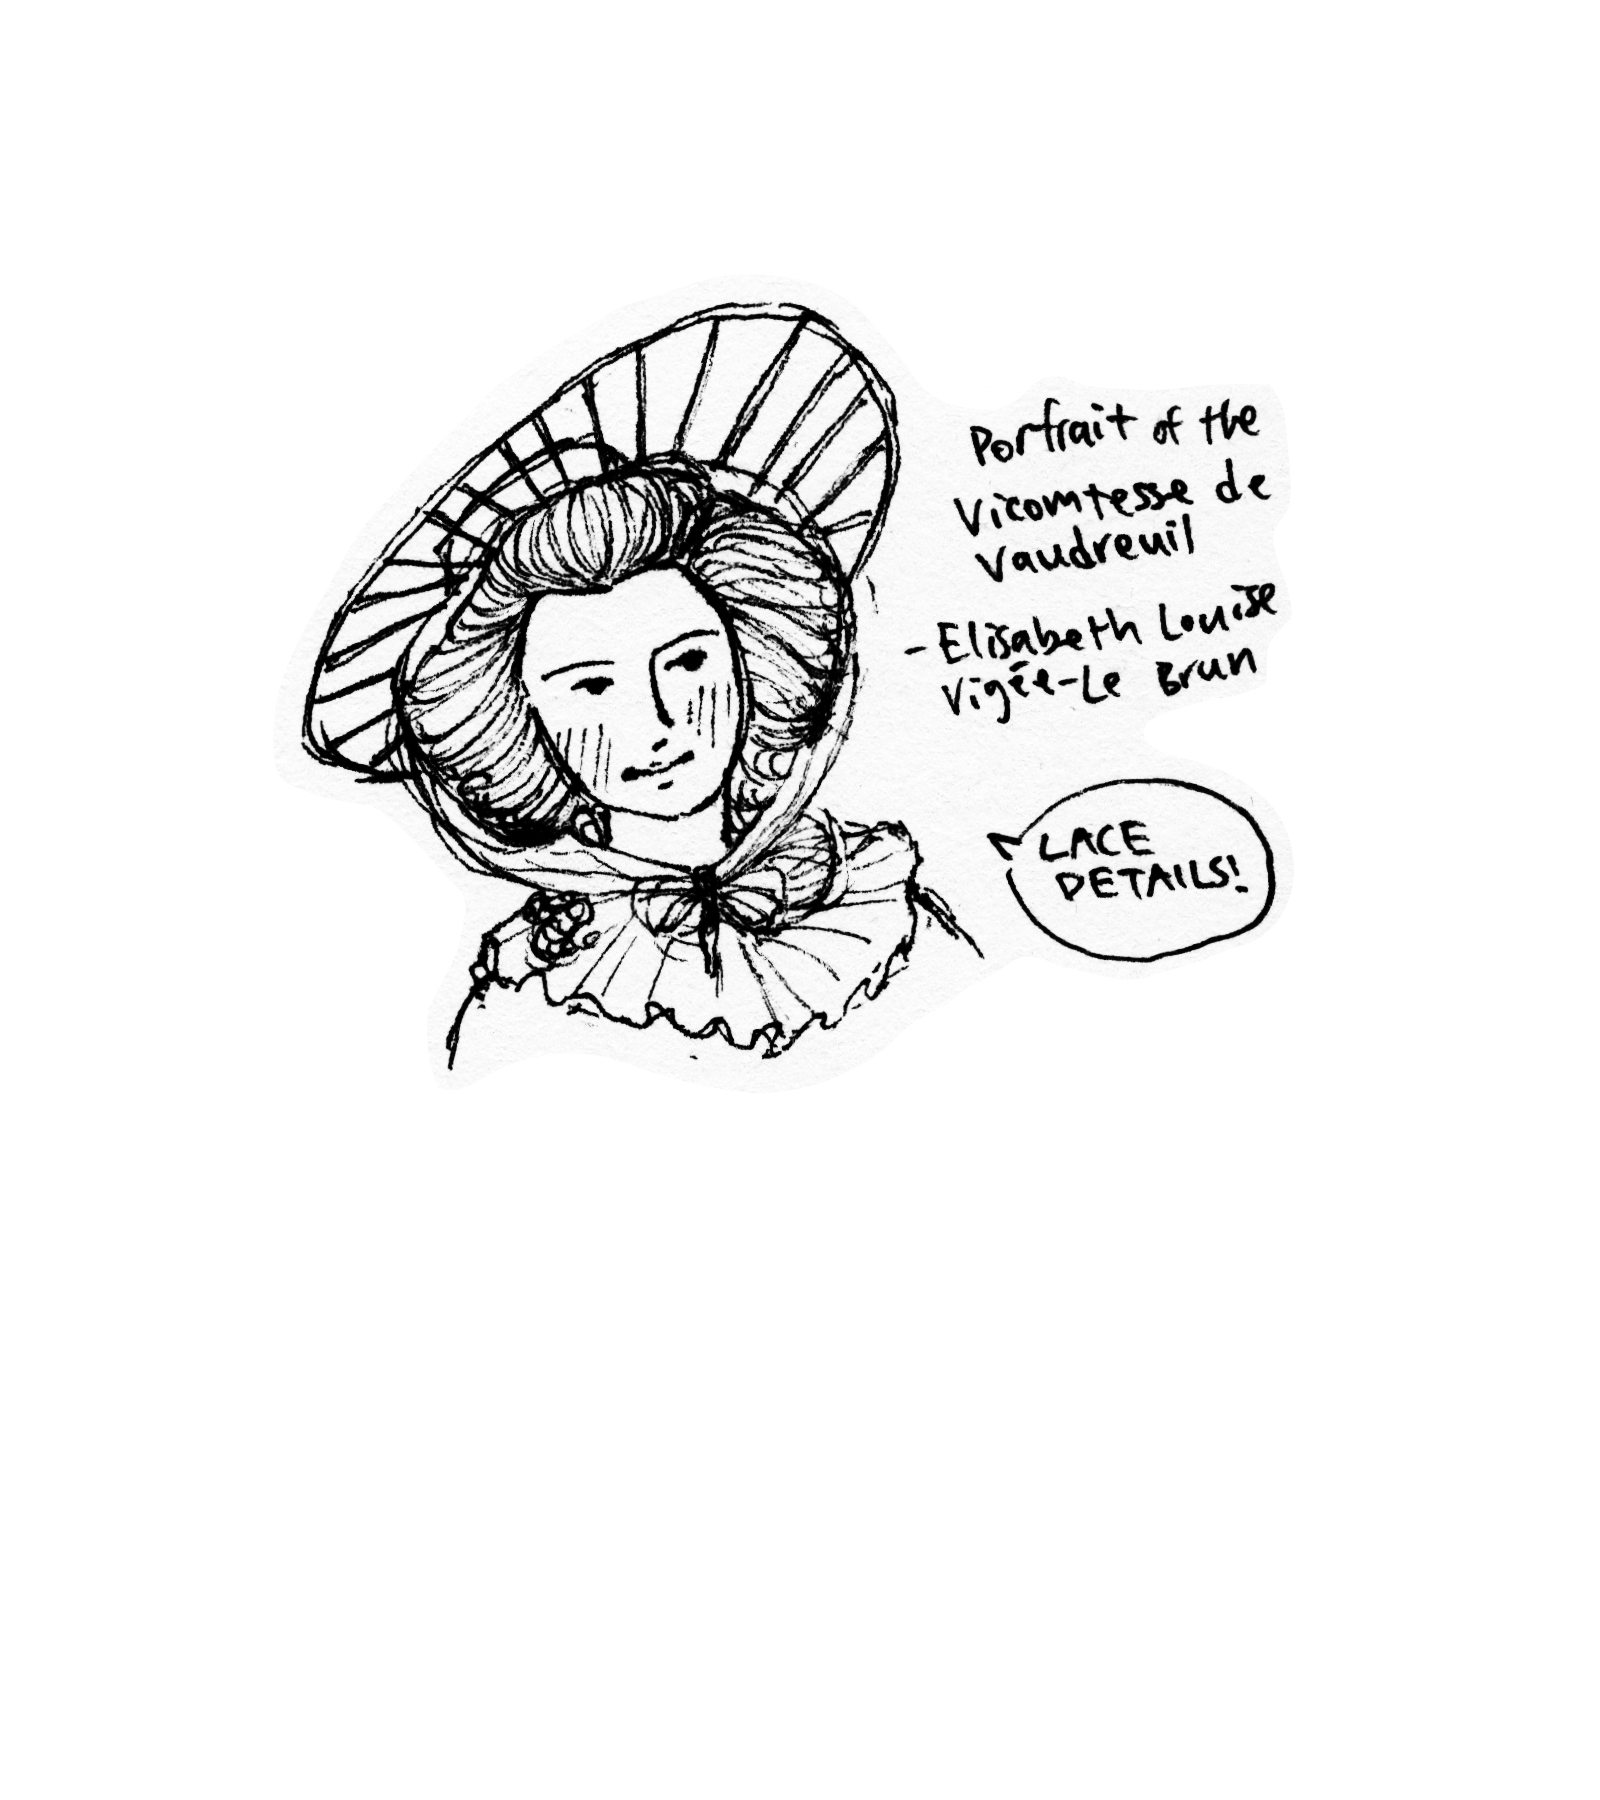 Portrait of the
Vicomtesse de
Vaudreuil
- Elisabeth Louise
Vigée-Le Brun
LACE
DETAILS!